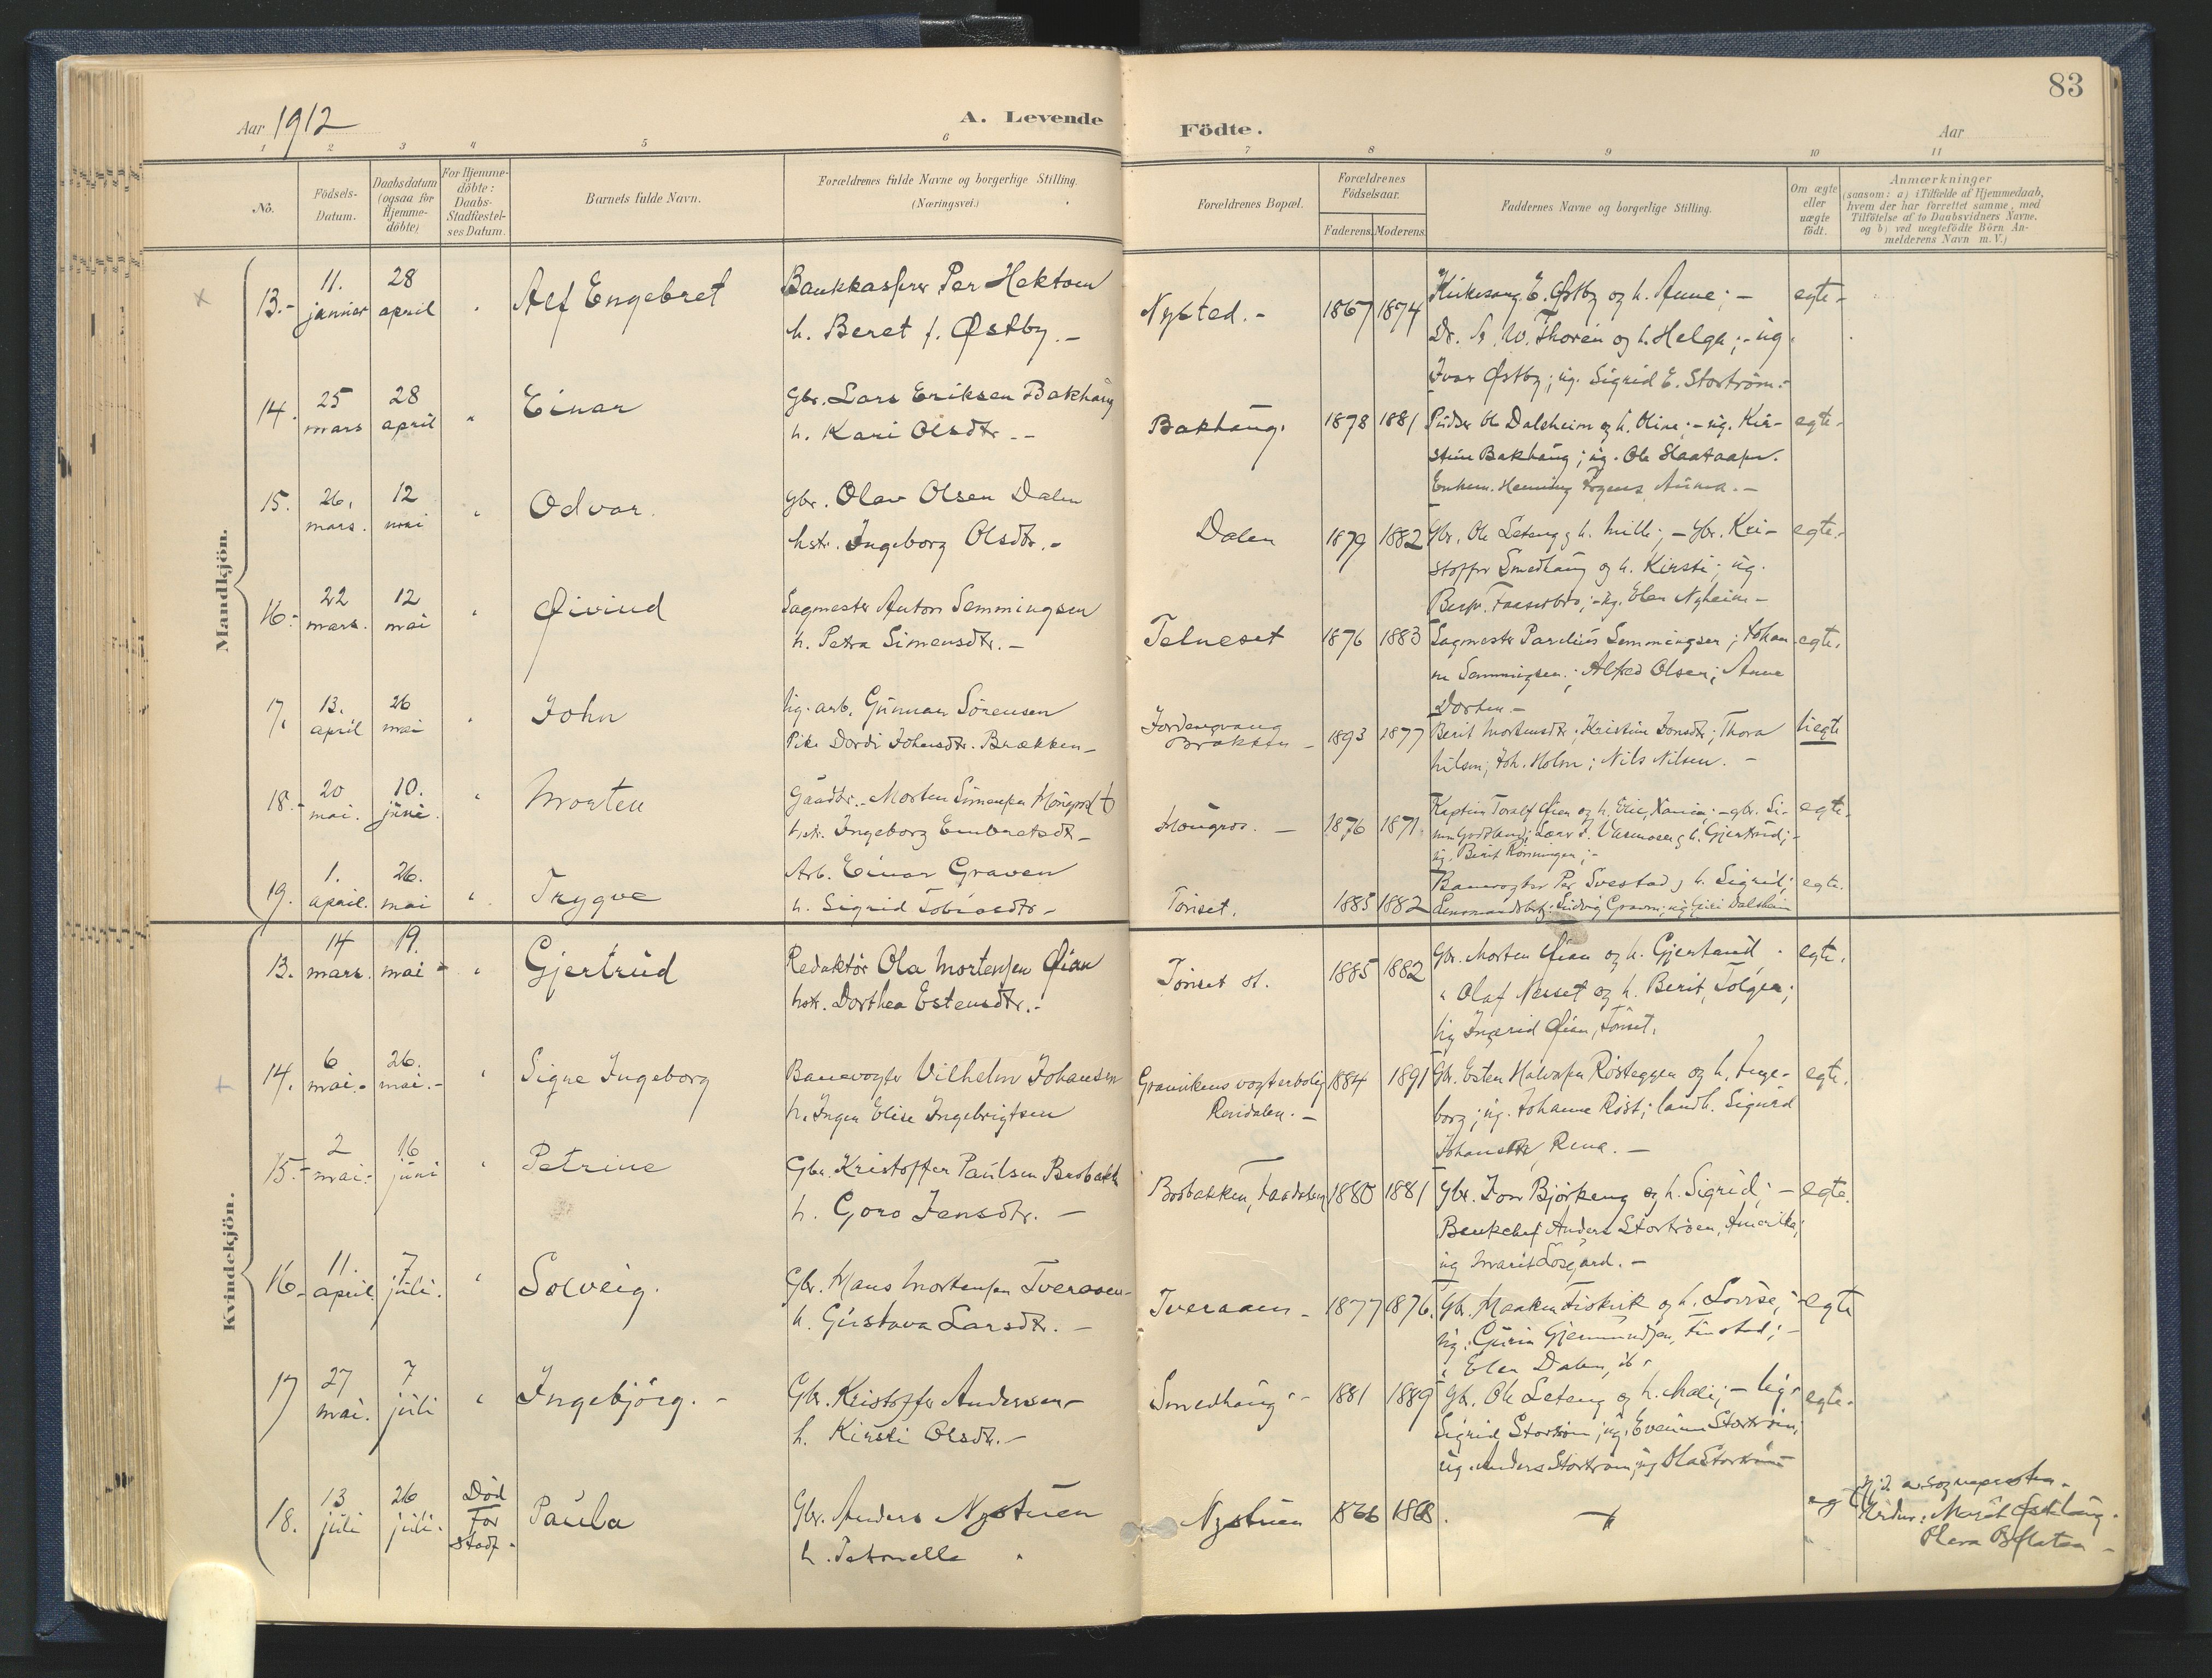 83
Aar 1912
A. Levende Födte.
Aar
1 2 3 4 5 6 7 8 9 10 11
No.
Födsels-Datum.
Daabsdatum (ogsaa for Hjemme-döbte)
For Hjemme-döbte: Daabs-Stadfæstel-ses Datum.
Barnets fulde Navn.
Forældrenes fulde Navne og borgerlige Stilling.
(Næringsvei.)
Forældrenes Bopæl.
Forældrenes Födselsaar.
Faderens. Moderens.
Faddernes Navne og borgerlige Stilling.
Om ægte eller uægte födt.
Anmærkninger
(saasom: a) i Tilfælde af Hjemmedaab,
hvem der har forrettet samme, med
Tilföielse af to Daabsvidners Navne,
og b) ved uægtefödte Börn An-
melderens Navn m. V.)
Mandkjön.
13.- 11. januar 28 april Alf Engebret
Bankkasserer Per Hektoen
h. Beret f. Østby.-
Nysted.- 1867 1874
Kirkesang. E. Østby og h. Anne; -
Dr. W. Thoren og h. Helga; - ug.
Ivar Østby; ug. Sigrid E. Storström.-
egte-
14. 25 mars 28 april Einar
Gbr. Lars Eriksen Bakhaug
h. Kari Olsdtr. --
Bakhaug. 1878 1881
Ole Dalsheim og h. Oline; - ug. Kir-
stine Bakhaug; ug. Ole
Henning Anna.-
egte-
15. 26. mars. 12 mai Odvar.
gbr. Olav Olsen Dalen
hstr. Ingeborg Olsdtr.-
Dalen 1879 1882
Gbr. Ole Leteng h. Milli; - gbr. Kri-
stoffer Smedhaug og h. Kirsti; ug.
ug. Elen Nyheim -
egte.-
16.- 22 mars. 12 mai Øivind
Sagmester Anton Semmingsen
h. Petra Simensdtr. -
Telneset 1876 1883
Sagmester Parelius Semmingsen; Johan-
ne Semmingsen.; Alfred Olsen; Anne
Dorten.-
egte.
17. 13. april 26 mai John
ug. arb. Gunnar Sörensen
Pike Dordi Johnsdtr. Brækken-
Brækken - 1893 1877
Berit Mortensdtr; Kristine Jonsdtr; Thora
Nilsen; Joh. Holm; Nils Nilsen. -
uegte
18.- 20 mai. 10. juni. Morten
Gaardbr. Morten Simensen
hstr. Ingeborg Embretsdtr-
1876 1871
Kaptein Toralf Øien og h. - gbr. Si-
h. Gjertrud; -
ug. Berit Rönningen; -
egte.
19. 1. april. 26. mai Trygve
Arb. Einar Graven
h. Sigrid Tobiasdtr-
Tönset. 1885 1882
Banevogter Per Svestad h. Sigrid;
Ludvig Graven; ug. Dalsheim
egte.
Kvindekjön.
13. 14 mars. 19. mai - Gjertrud
Redaktör Ola Mortensen Øian
hstr. Dorthea Estensdtr.-
Tönset st. 1885 1882
Gbr. Morten Øian og h. Gjertrud -
" Olaf Nesset og h. Berit, Tolgen;
ug Ingrid Øian, Tönset.
egte.
14. 6 mai.- 26. mai.- Signe Ingeborg
Banevogter Vilhelm Johansen
h. Inger Elise Ingebrigtsen
vogterbolig
Rendalen.- 1884 1891
Gbr. Esten Halvorsen Rösteggen og h. Inge-
borg; ug. Johanne Röst; landh. Sigurd
Johansen, Rena. -
egte.
15.- 2 mai. 16 juni Petrine
Gbr. Kristoffer Paulsen Brobakk
h. Goro Jensdtr. -
Brobakken, Faadalen 1880 1881
Gbr. Jon Björkeng og h. Sigrid; -
Anders Storströen, Amerika;
ug Marit -
egte.
16- 11. april 7 juli. Solveig.
Gbr. Hans Mortensen Tveraaen-
h. Gustava Larsdtr. -
Tveraaen - 1877 1876.
Gbr. Haaken Fiskvik og h. Lovise; -
ug. Guri Gjermundsen, Finstad; -
" Elen Dalen, ib.
egte
17 27 mai. 7 juli Ingebjörg. -
Gbr. Kristoffer Andersen-
h. Kirsti Olsdtr.-
Smedhaug - 1881 1889
Gbr. Ole Leteng og h. Mali; - ug.
Sigrid ug. Even
ug. Anders ug Ola
egte.
18. 13 juli 26 juli. Död för stadf. Paula
Gbr. Anders Nystuen
h. Petronelle "
Nystuen 1866 1868.
eg
Hj.d. av sogneprosten.
Marit